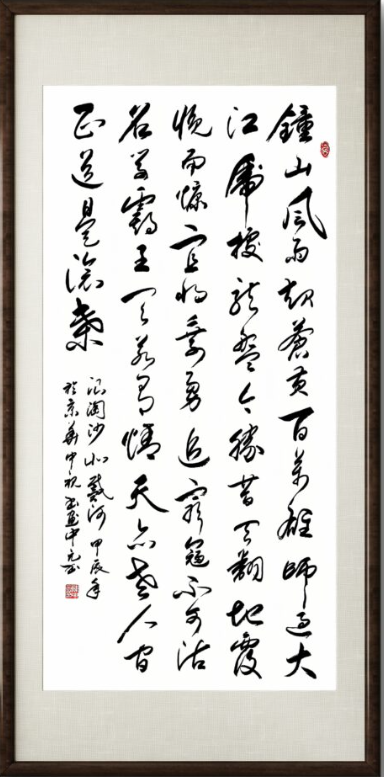 鐘山风雨起蒼黄百萬雄師过大
江虎踞龙盤今勝昔天翻地覆
慨而慷宜将剩勇追窮寇不可沽
名学霸王天若有情天亦老人间
正道是滄桑
浪淘沙 河 甲辰年
於京華中